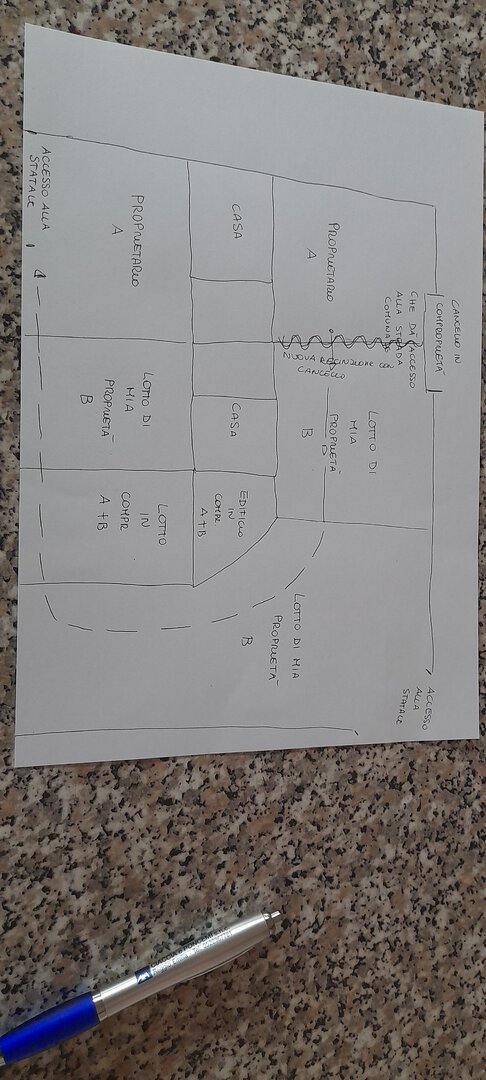 CANCELLO IN
COMPROPRIETÀ
CHE DÀ ACCESSO
ALLA STRADA
COMUNALE
ACCESSO
ALLA
STATALE
PROPRIETARIO
A
NUOVA RECINZIONE CON
CANCELLO
LOTTO DI
MIA
PROPRIETÀ
B
LOTTO DI MIA
PROPRIETÀ
B
CASA
CASA
EDIFICIO
IN
COMPR.
A+B
PROPRIETARIO
A
LOTTO DI
MIA
PROPRIETÀ
B
LOTTO
IN
COMPR
A+B
ACCESSO ALLA
STATALE